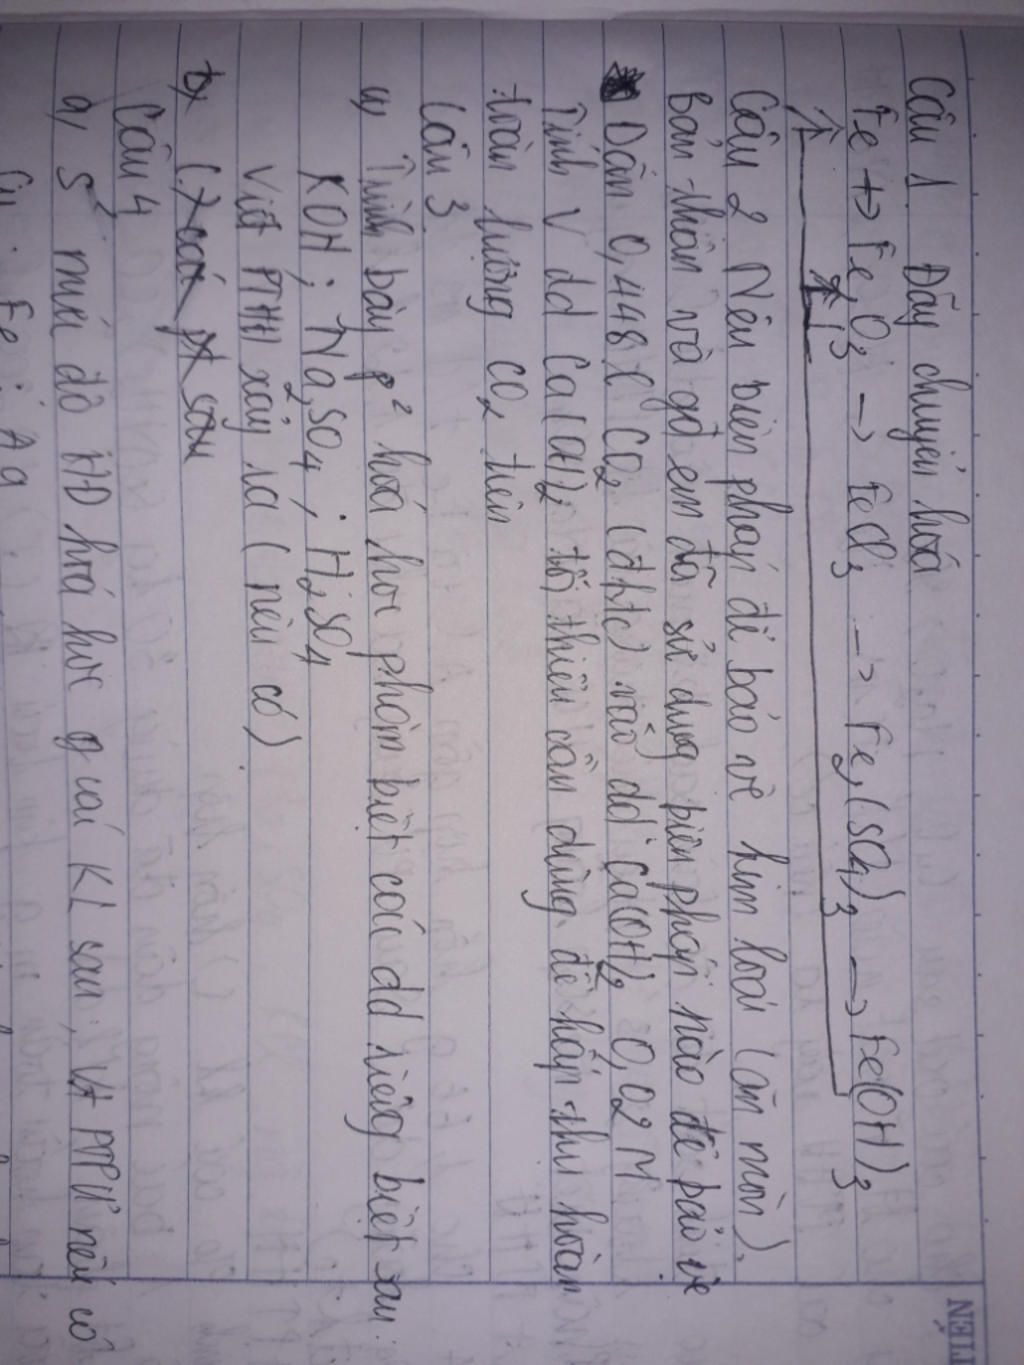 Câu 1. Dãy chuyển hoá
Fe → Fe₂O₃ → FeCl₃ → Fe₂(SO₄)₃ → Fe(OH)₃
Câu 2 Nêu biện pháp để bảo vệ kim loại (ăn mòn).
bản thân và gđ em đã sử dụng biện pháp nào để bảo vệ
Dẫn 0,448 l CO₂ (đktc) vào dd Ca(OH)₂ 0,02 M
Tính V dd Ca(OH)₂ tối thiểu cần dùng để hấp thu hoàn
toàn lượng CO₂ trên
Câu 3.
a, Trình bày p² hoá học phân biệt các dd riêng biệt sau:
KOH; Na₂SO₄; H₂SO₄
Viết PTHH xảy ra (nếu có)
b,
Câu 4
a, S² mức độ HĐ hoá học của KL sau, Vt PTPƯ nếu có
Cu, Fe, Ag
TIẾN